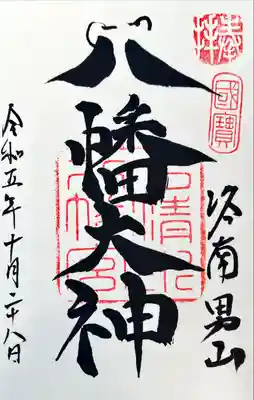 奉拝
國寶
洛南男山
八幡大神
石清水八幡宮
令和五年十月二十八日